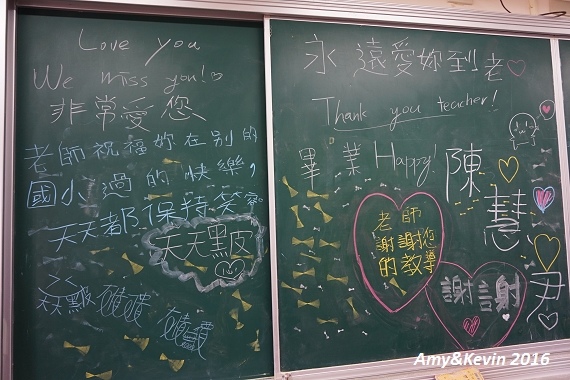 Love you
We miss you!
非常愛您
老師祝福妳在別的
國小過的快樂,
天天都保持笑容
天天黑皮
永遠愛妳到老
Thank you teacher!
畢業Happy!
陳慧尹
老師
謝謝您
的教導
謝謝
Amy&Kevin 2016